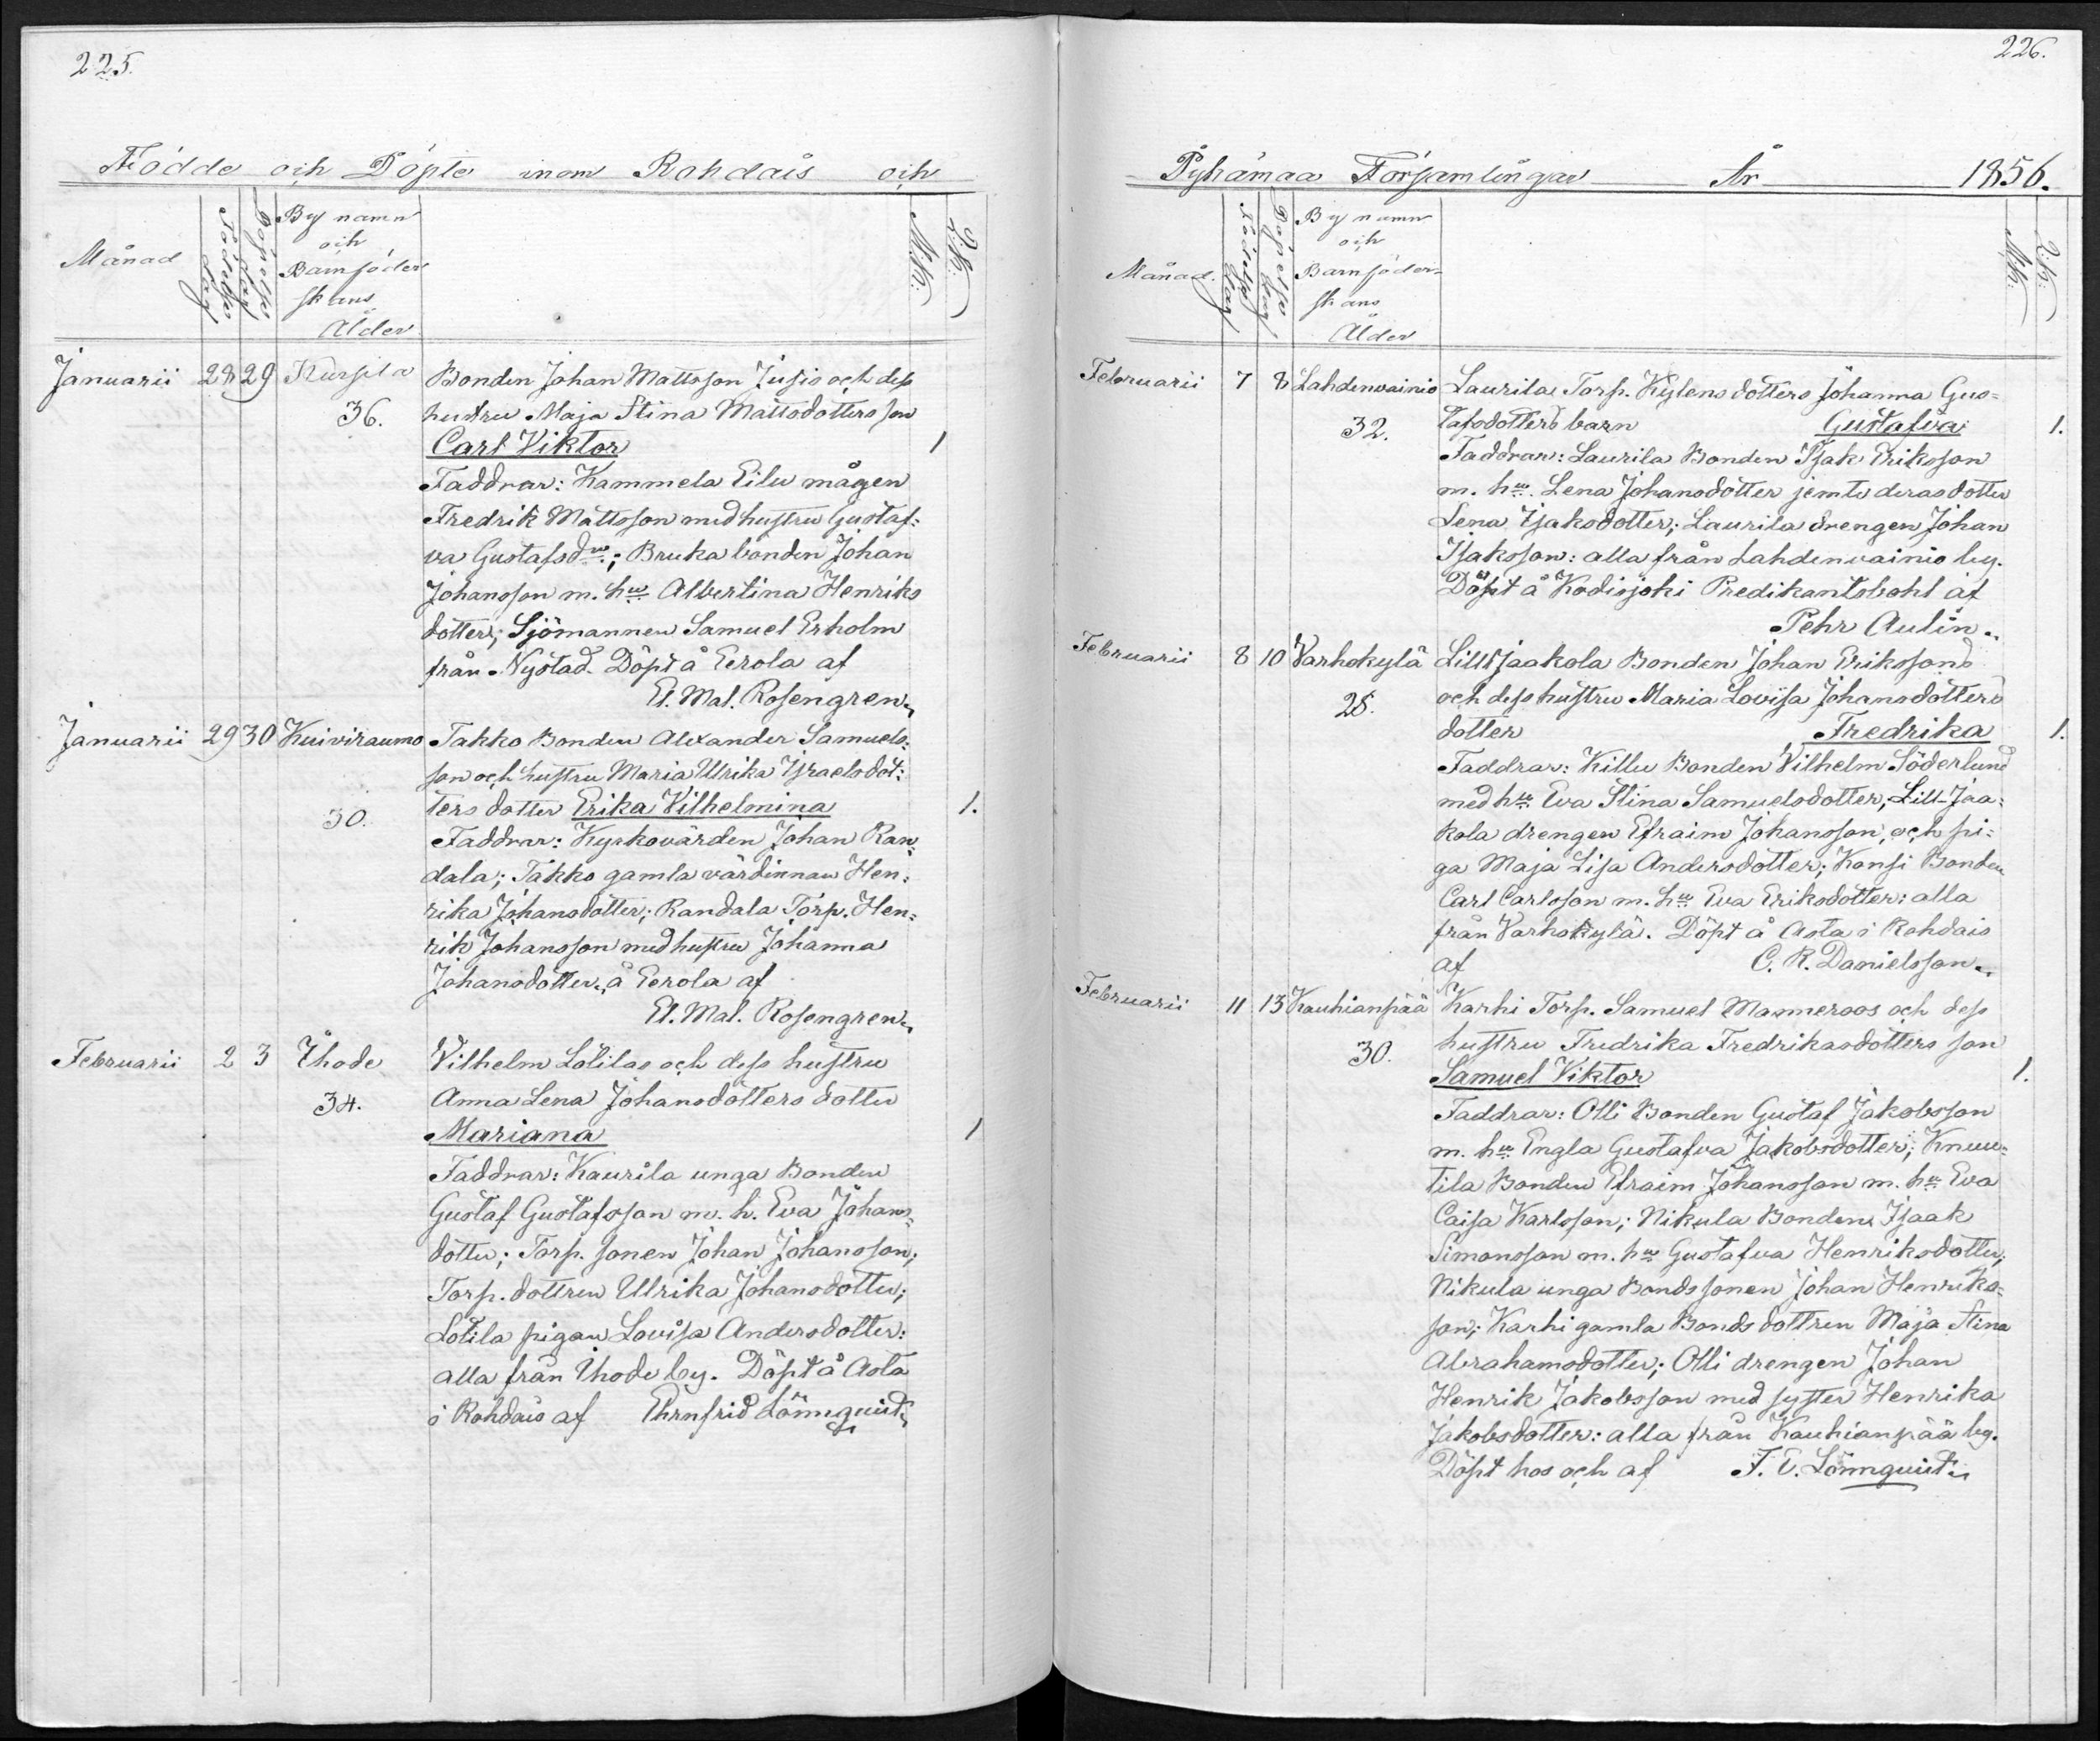 225.
Födde och Döpte inom Rohdais och
Månad
Födelse dag
Döpelse dag
By namn
och
Barnföder
skans
Ålder
M.K.
Q.K.
Januarii 28 29 Kurjela Bonden Johan Mattsson Jusio och dess
36. hustru Maja Stina Mattsdotters son
Carl Viktor 1
Faddrar: Kammela Eilu mågen
Fredrik Mattsson med hustru Gustaf=
va Gustafsdtr; Bruka bonden Johan
Johansson m. hu Albertina Henriks
dotter; Sjömannen Samuel Erholm
från Nystad. Döpt å Eerola af
El. Mal. Rosengren
Januarii 29 30 Kuiviraumo Takko Bonden Alexander Samuels=
son och hustru Maria Ulrika Israelsdot=
30. ters dotter Erika Vilhelmina 1.
Faddrar: Kyrkovärden Johan Ran=
dala; Takko gamla värdinnan Hen=
rika Johansdotter; Randala Torp. Hen=
rik Johansson med hustru Johanna
Johansdotter, å Eerola af
El. Mal. Rosengren
Februarii 2 3 Ihode Vilhelm Lötilas och dess hustru
34. Anna Lena Johansdotters dotter
Mariana 1
Faddrar: Kaurila unga Bonden
Gustaf Gustafsson m. h. Eva Johans=
dotter; Torp. sonen Johan Johansson;
Torp. dottren Ulrika Johansdotter;
Lötila pigan Lovisa Andersdotter:
alla från Ihode by. Döpt å Aota
i Rohdais af Ehrnfrid Lönnquist
226.
Pyhämaa Församlingar År 1856.
Månad.
Födelse dag
Döpelse dag
By namn
och
Barnföder=
skans
Ålder
M.K.
Q.K.
Februarii 7 8 Lahdenvainio Laurila Torp. Kylens dotters Johanna Gus=
32. tafsdotters barn Gustafva 1.
Faddrar: Laurila Bonden Isak Eriksson
m. hu. Lena Johansdotter jemte deras dotter
Lena Isaksdotter; Laurila drengen Johan
Isaksson: alla från Lahdenvainio by.
Döpt å Kodisjoki Predikantsbohl af
Pehr Aulin
Februarii 8 10 Varhokylä Lill Jaakola Bonden Johan Erikssons
28. och dess hustru Maria Lovisa Johansdotters
dotter Fredrika 1.
Faddrar: Killu Bonden Vilhelm Söderlund
med hu Eva Stina Samuelsdotter; Lill-Jaa=
kola drengen Efraim Johansson och pi=
ga Maja Lisa Andersdotter; Konsi Bonden
Carl Carlsson m. hu Eva Eriksdotter: alla
från Varhokylä. Döpt å Aota i Rohdais
af C. R. Danielsson
Februarii 11 13 Kauhianpää Karhi Torp. Samuel Manneroos och dess
30. hustru Fredrika Fredrikasdotters son
Samuel Viktor 1.
Faddrar: Olli Bonden Gustaf Jakobsson
m. hu Engla Gustafva Jakobsdotter; Knuu=
tila Bonden Efraim Johansson m. hu Eva
Caisa Karlsson; Nikula Bonden Isaak
Simonsson m. hu Gustafva Henriksdotter;
Nikula unga Bondssonen Johan Henriks=
son; Karhi gamla Bonds dottren Maja Stina
Abrahamsdotter; Olli drengen Johan
Henrik Jakobsson med syster Henrika
Jakobsdotter: alla från Kauhianpää by.
Döpt hos och af F. E. Lönnquist